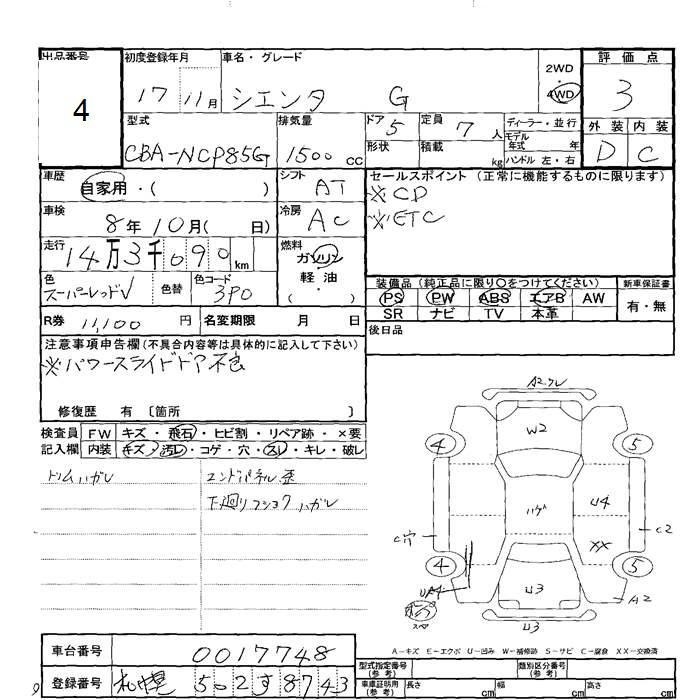 出品番号
4
初度登録年月
17 11月
車名・グレード
シエンタ G
2WD
・
4WD
評価点
3
型式
CBA-NCP85G
排気量
1500 cc
ドア 5
形状
定員 7 人
積載 kg
ディーラー・並行
モデル年式 年
ハンドル 左・右
外装 内装
D C
車歴
自家用・( )
シフト
AT
セールスポイント (正常に機能するものに限ります)
※CD
※ETC
車検
8年10月( 日)
冷房
AC
走行
14万3千090km
燃料
ガソリン
軽油
( ・ )
色
スーパーレッドV
色替
色コード
3P0
装備品 (純正品に限り○をつけてください)
新車保証書
PS PW ABS エアB AW
SR ナビ TV 本革
有・無
R券 11,100 円
名変期限 月 日
後日品
注意事項申告欄(不具合内容等は具体的に記入して下さい)
※パワースライドドア不良
修復歴 有 〔箇所 〕
検査員 FW キズ・飛石・ヒビ割・リペア跡・×要
記入欄 内装 キズ・汚レ・コゲ・穴・スレ・キレ・破レ
ドリムハガレ
エンドパネル歪
下廻りフショクハガレ
A2クレ
W2
4 5
ハゲ
U4
C穴
C2
XX
4 5
UA4
U3
A2
スペア
U3
A-キズ E-エクボ U-凹み W-補修跡 S-サビ C-腐食 XX-交換済
車台番号
0017748
登録番号
札幌 502す8743
型式指定番号
(参考)
類別区分番号
(参考)
車庫証明用
(参考)
長さ cm
幅 cm
高さ cm